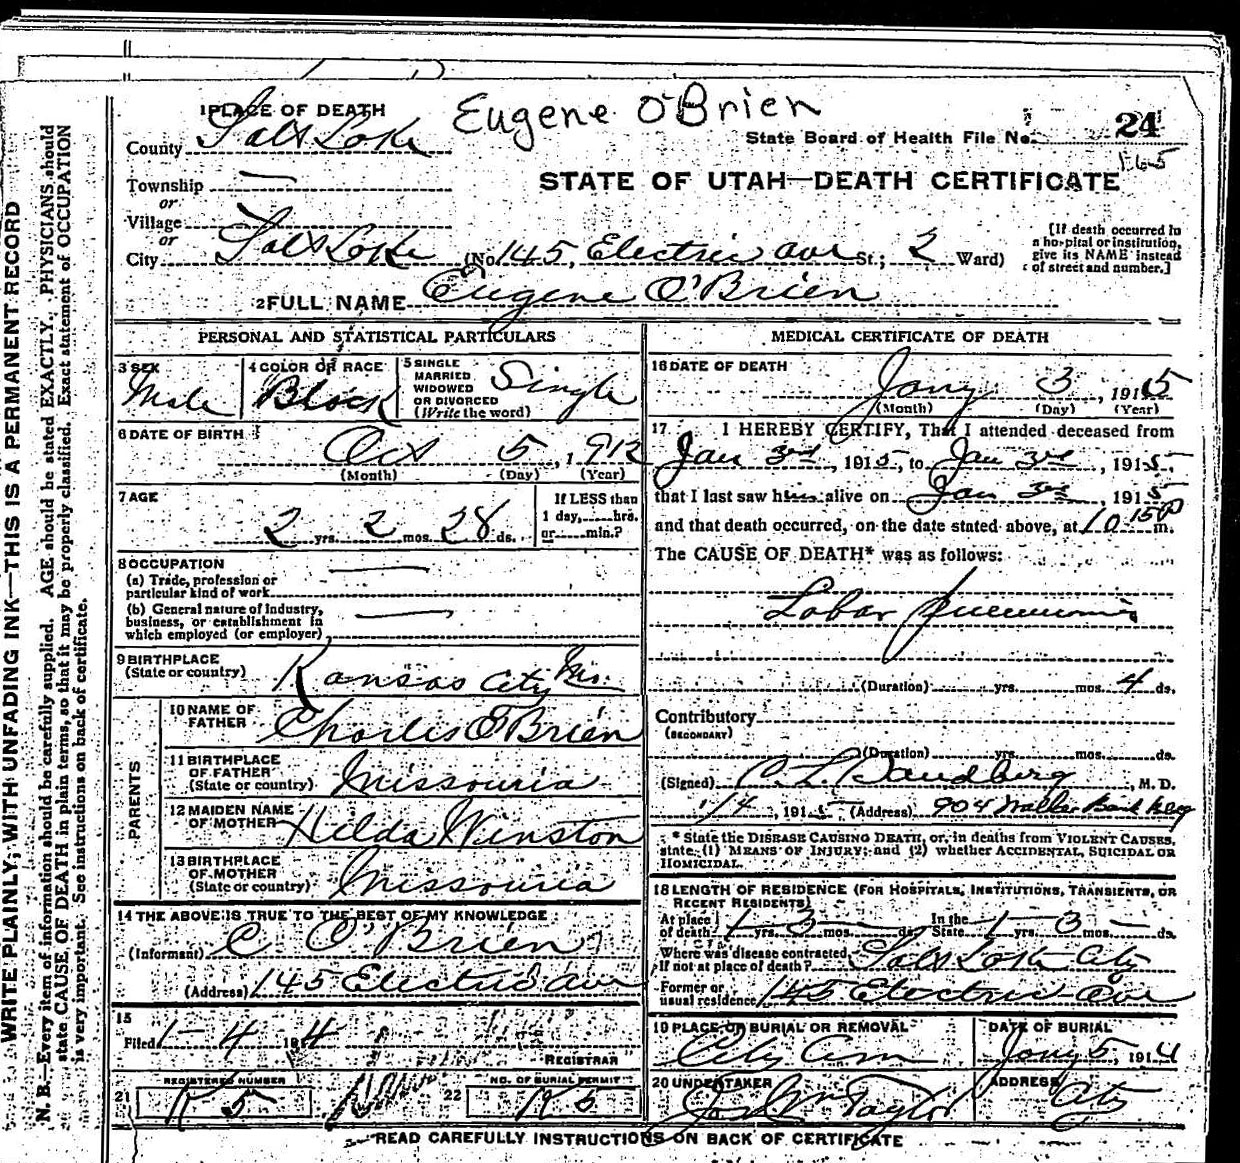 Eugene O'Brien
1 PLACE OF DEATH
State Board of Health File No. 24
County Salt Lake
165
Township —
STATE OF UTAH—DEATH CERTIFICATE
or
Village
or
City Salt Lake (No. 145, Electric Ave St.; 2 Ward)
[If death occurred in a hospital or institution, give its NAME instead of street and number.]
2 FULL NAME Eugene O'Brien
PERSONAL AND STATISTICAL PARTICULARS
3 SEX Male
4 COLOR OR RACE Black
5 SINGLE MARRIED WIDOWED OR DIVORCED (Write the word) Single
6 DATE OF BIRTH Oct 5, 1912
(Month) (Day) (Year)
7 AGE 2 yrs. 2 mos. 28 ds.
If LESS than 1 day, hrs. or min.?
8 OCCUPATION
(a) Trade, profession or particular kind of work —
(b) General nature of Industry, business, or establishment in which employed (or employer) —
9 BIRTHPLACE (State or country) Kansas City Mo.
PARENTS
10 NAME OF FATHER Charles O'Brien
11 BIRTHPLACE OF FATHER (State or country) Missouria
12 MAIDEN NAME OF MOTHER Hilda Winston
13 BIRTHPLACE OF MOTHER (State or country) Missouria
14 THE ABOVE IS TRUE TO THE BEST OF MY KNOWLEDGE
(Informant) C O'Brien
(Address) 145 Electric ave
15
Filed 1-4 191
REGISTRAR
REGISTERED NUMBER
21 K 5
NO. OF BURIAL PERMIT
22 K 5
MEDICAL CERTIFICATE OF DEATH
16 DATE OF DEATH Jany 3, 1915
(Month) (Day) (Year)
17 I HEREBY CERTIFY, That I attended deceased from
Jan 3rd, 1915, to Jan 3rd, 1915,
that I last saw him alive on Jan 3rd, 1915
and that death occurred, on the date stated above, at 10.15 P m.
The CAUSE OF DEATH* was as follows:
Lobar pneumonia
(Duration) yrs. mos. 4 ds.
Contributory
(SECONDARY)
(Duration) yrs. mos. ds.
(Signed) C. L. Sandberg, M. D.
1/4, 1915 (Address) 904 Walker Bank Bldg
* State the DISEASE CAUSING DEATH, or, in deaths from VIOLENT CAUSES, state (1) MEANS OF INJURY; and (2) whether ACCIDENTAL, SUICIDAL OR HOMICIDAL.
18 LENGTH OF RESIDENCE (FOR HOSPITALS, INSTITUTIONS, TRANSIENTS, OR RECENT RESIDENTS)
At place of death 1 yrs. 3 mos. ds. In the State 1 yrs. 3 mos. ds.
Where was disease contracted, If not at place of death? Salt Lake City
Former or usual residence 145 Electric Ave
19 PLACE OF BURIAL OR REMOVAL City Cem
DATE OF BURIAL Jany 5, 1914
20 UNDERTAKER Jos Wm Taylor
ADDRESS City
READ CAREFULLY INSTRUCTIONS ON BACK OF CERTIFICATE
WRITE PLAINLY, WITH UNFADING INK—THIS IS A PERMANENT RECORD
N. B.—Every item of information should be carefully supplied. AGE should be stated EXACTLY. PHYSICIANS should
state CAUSE OF DEATH in plain terms, so that it may be properly classified. Exact statement of OCCUPATION
is very important. See instructions on back of certificate.